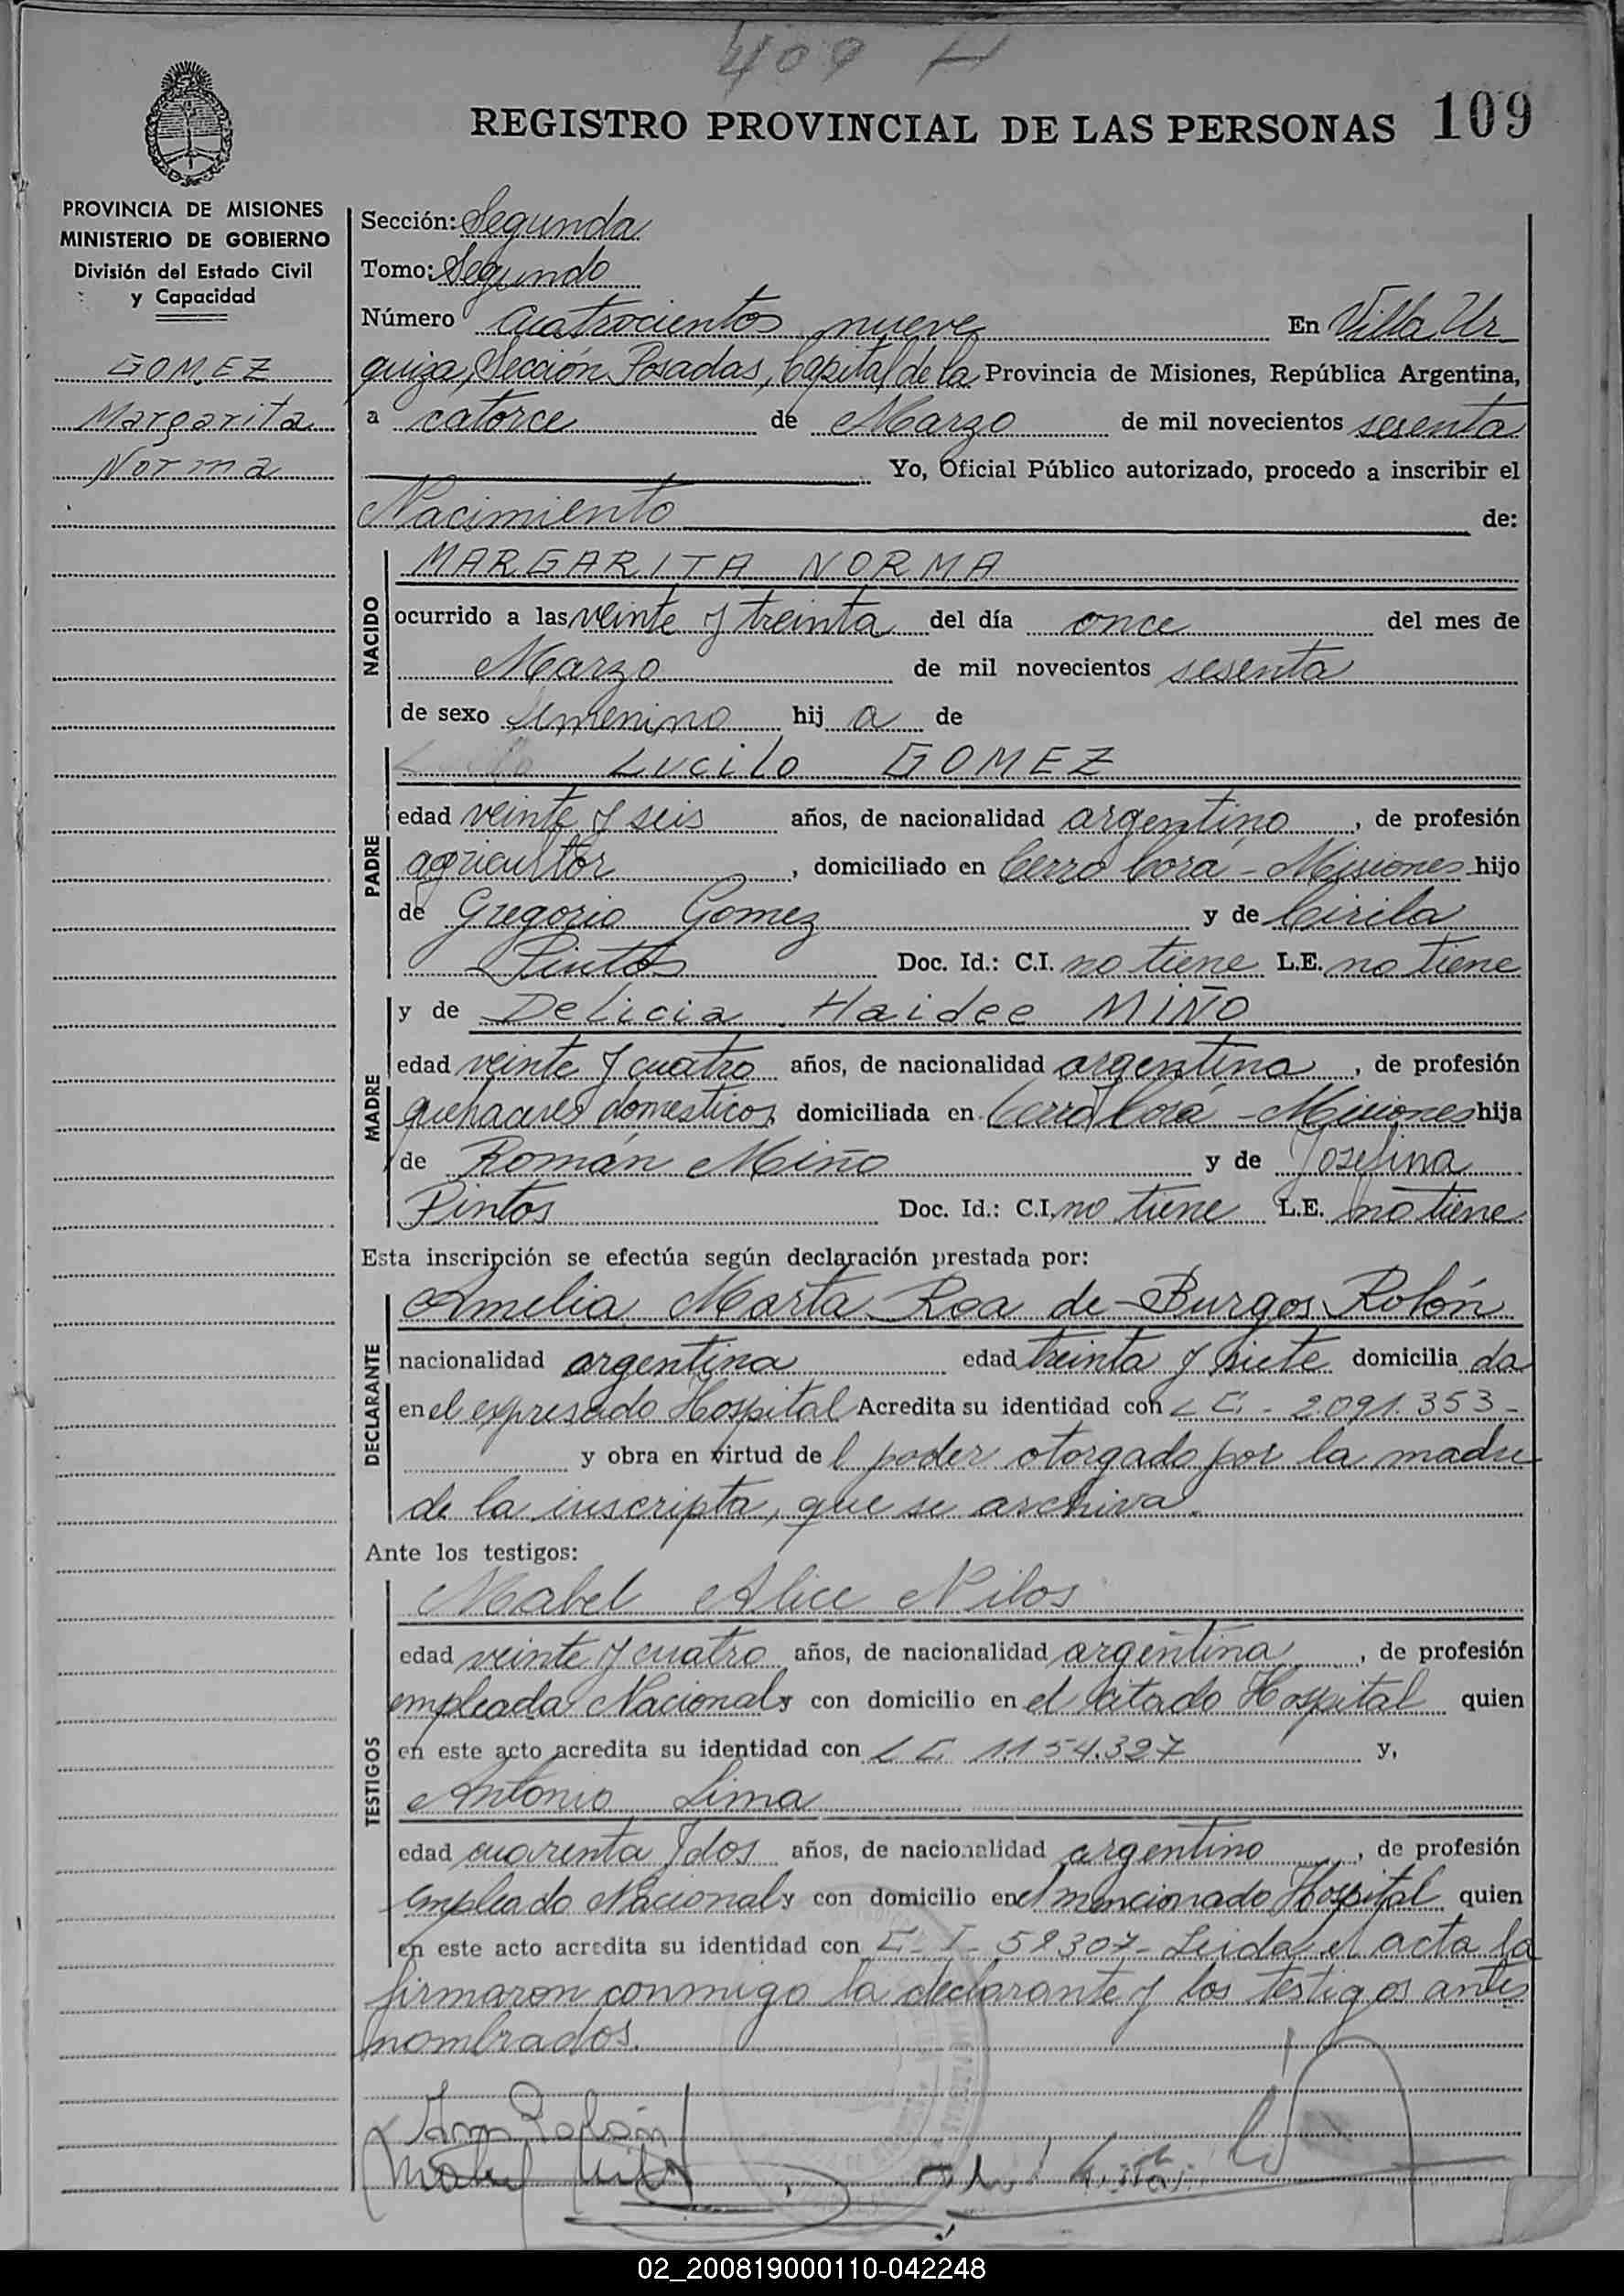 409 H
REGISTRO PROVINCIAL DE LAS PERSONAS 109
PROVINCIA DE MISIONES
MINISTERIO DE GOBIERNO
División del Estado Civil
y Capacidad
GOMEZ
Margarita
Norma
Sección: Segunda
Tomo: Segundo
Número cuatrocientos nueve En Villa Ur
quiza, Sección Posadas, Capital de la Provincia de Misiones, República Argentina,
a catorce de Marzo de mil novecientos sesenta
Yo, Oficial Público autorizado, procedo a inscribir el
Nacimiento de:
NACIDO
MARGARITA NORMA
ocurrido a las veinte y treinta del día once del mes de
Marzo de mil novecientos sesenta
de sexo femenino hij a de
PADRE
Lucilo GOMEZ
edad veinte y seis años, de nacionalidad argentino, de profesión
agricultor, domiciliado en Cerro Corá - Misiones hijo
de Gregorio Gomez y de Cirila
Pintos Doc. Id.: C.I. no tiene L.E. no tiene
MADRE
y de Delicia Haidee MIÑO
edad veinte y cuatro años, de nacionalidad argentina, de profesión
quehaceres domesticos, domiciliada en Cerro Corá - Misiones hija
de Román Miño y de Josefina
Pintos Doc. Id.: C.I. no tiene L.E. no tiene
Esta inscripción se efectúa según declaración prestada por:
DECLARANTE
Amelia Marta Roa de Burgos Rolón
nacionalidad argentina edad treinta y siete domicilia da
en el expresado Hospital Acredita su identidad con L C - 2.091.353 -
y obra en virtud de l poder otorgado por la madre
de la inscripta, que se archiva.
Ante los testigos:
TESTIGOS
Mabel Alice Nilos
edad veinte y cuatro años, de nacionalidad argentina, de profesión
empleada Nacional y con domicilio en el citado Hospital quien
en este acto acredita su identidad con L C 1.154.327 y,
Antonio Lima
edad cuarenta y dos años, de nacionalidad argentino, de profesión
empleado Nacional y con domicilio en el mencionado Hospital quien
en este acto acredita su identidad con C - I - 52307 - Leida el acta la
firmaron conmigo la declarante y los testigos antes
nombrados.
02_200819000110-042248